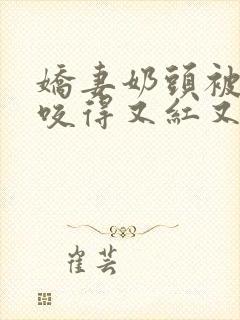 嬌妻奶頭被
咬得又紅又
崔芸